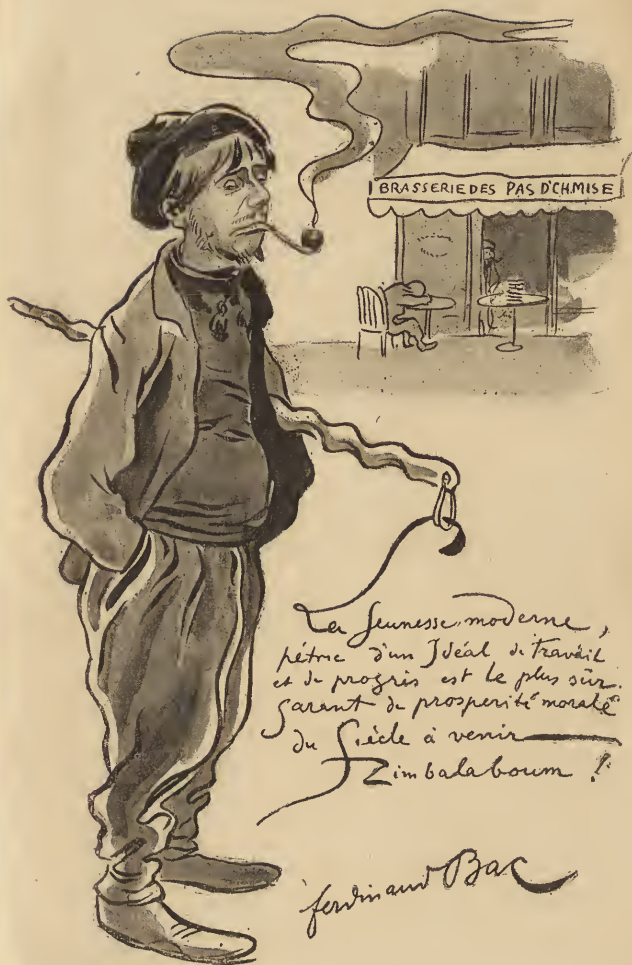 BRASSERIE DES PAS D'CH'MISE
La Jeunesse moderne,
pétrie d'un Idéal de travail
et de progrès est le plus sûr
garant de prosperité morale
du Siècle à venir
Zimbalaboum !
ferdinand Bac